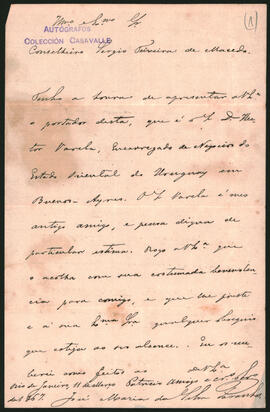 Illmo e Exmo Sr
(1)
AUTÓGRAFOS
COLECCIÓN CASAVALLE
Conselheiro Sergio Teixeira de Macedo.
Tenho a honra de apresentar a V. Ex.ª
o portador desta, que é o Sr. D. Hec-
tor Varela, Encarregado de Negocios do
Estado Oriental do Uruguay em
Buenos-Ayres. O Sr. Varela é meu
antigo amigo, e pessoa digna de
particular estima. Rogo a V. Ex.ª que
o acolha com sua costumada benevolen
cia para comigo, e que lhe preste
e á sua Exma Sra qualquer obsequio
que esteja ao seu alcance. Eu os rece
berei como feitos ao de V. Ex.ª
Rio de Janeiro, 11 de Março Patricio Amigo e
de 186
José Maria da Silva Paranhos